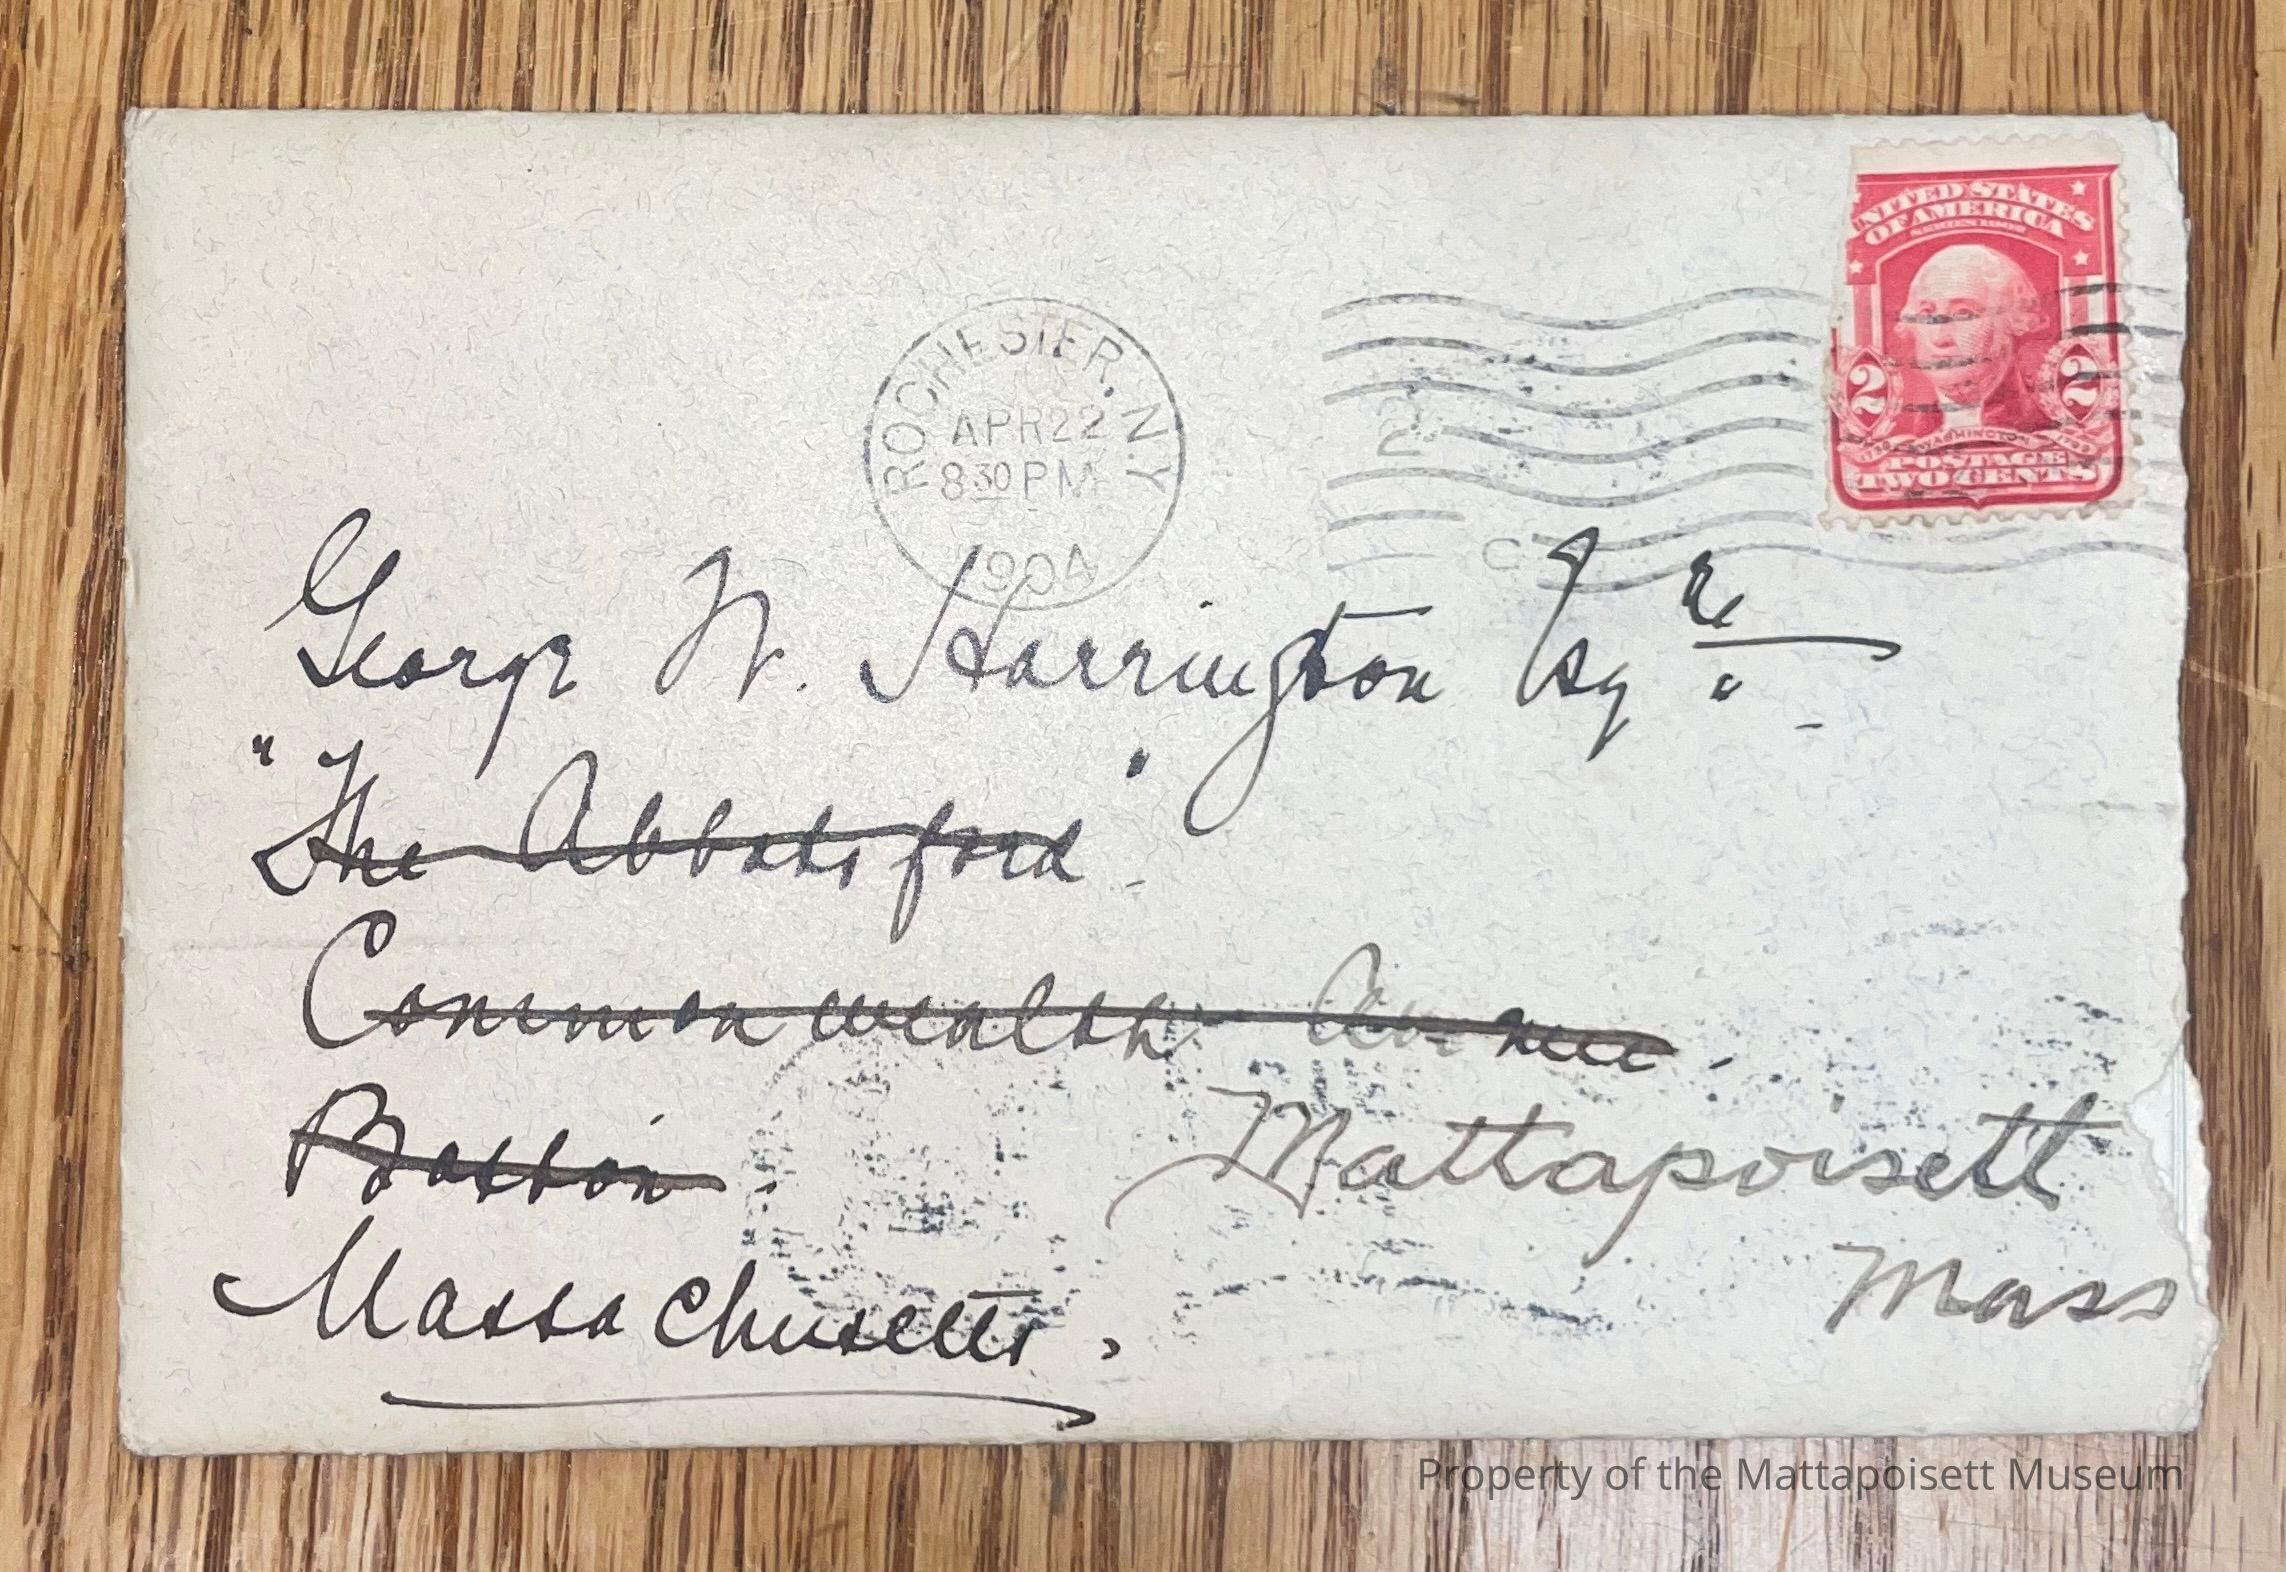 UNITED STATES
OF AMERICA
SERIES 1902
2 2
1732 WASHINGTON 1799
POSTAGE
TWO CENTS
ROCHESTER, N.Y.
APR 22
8 30 PM
1904
George W. Harrington Esqre.
"The Abbotsford"
Commonwealth Avenue.
Boston
Massachusetts,
Mattapoisett
Mass
Property of the Mattapoisett Museum